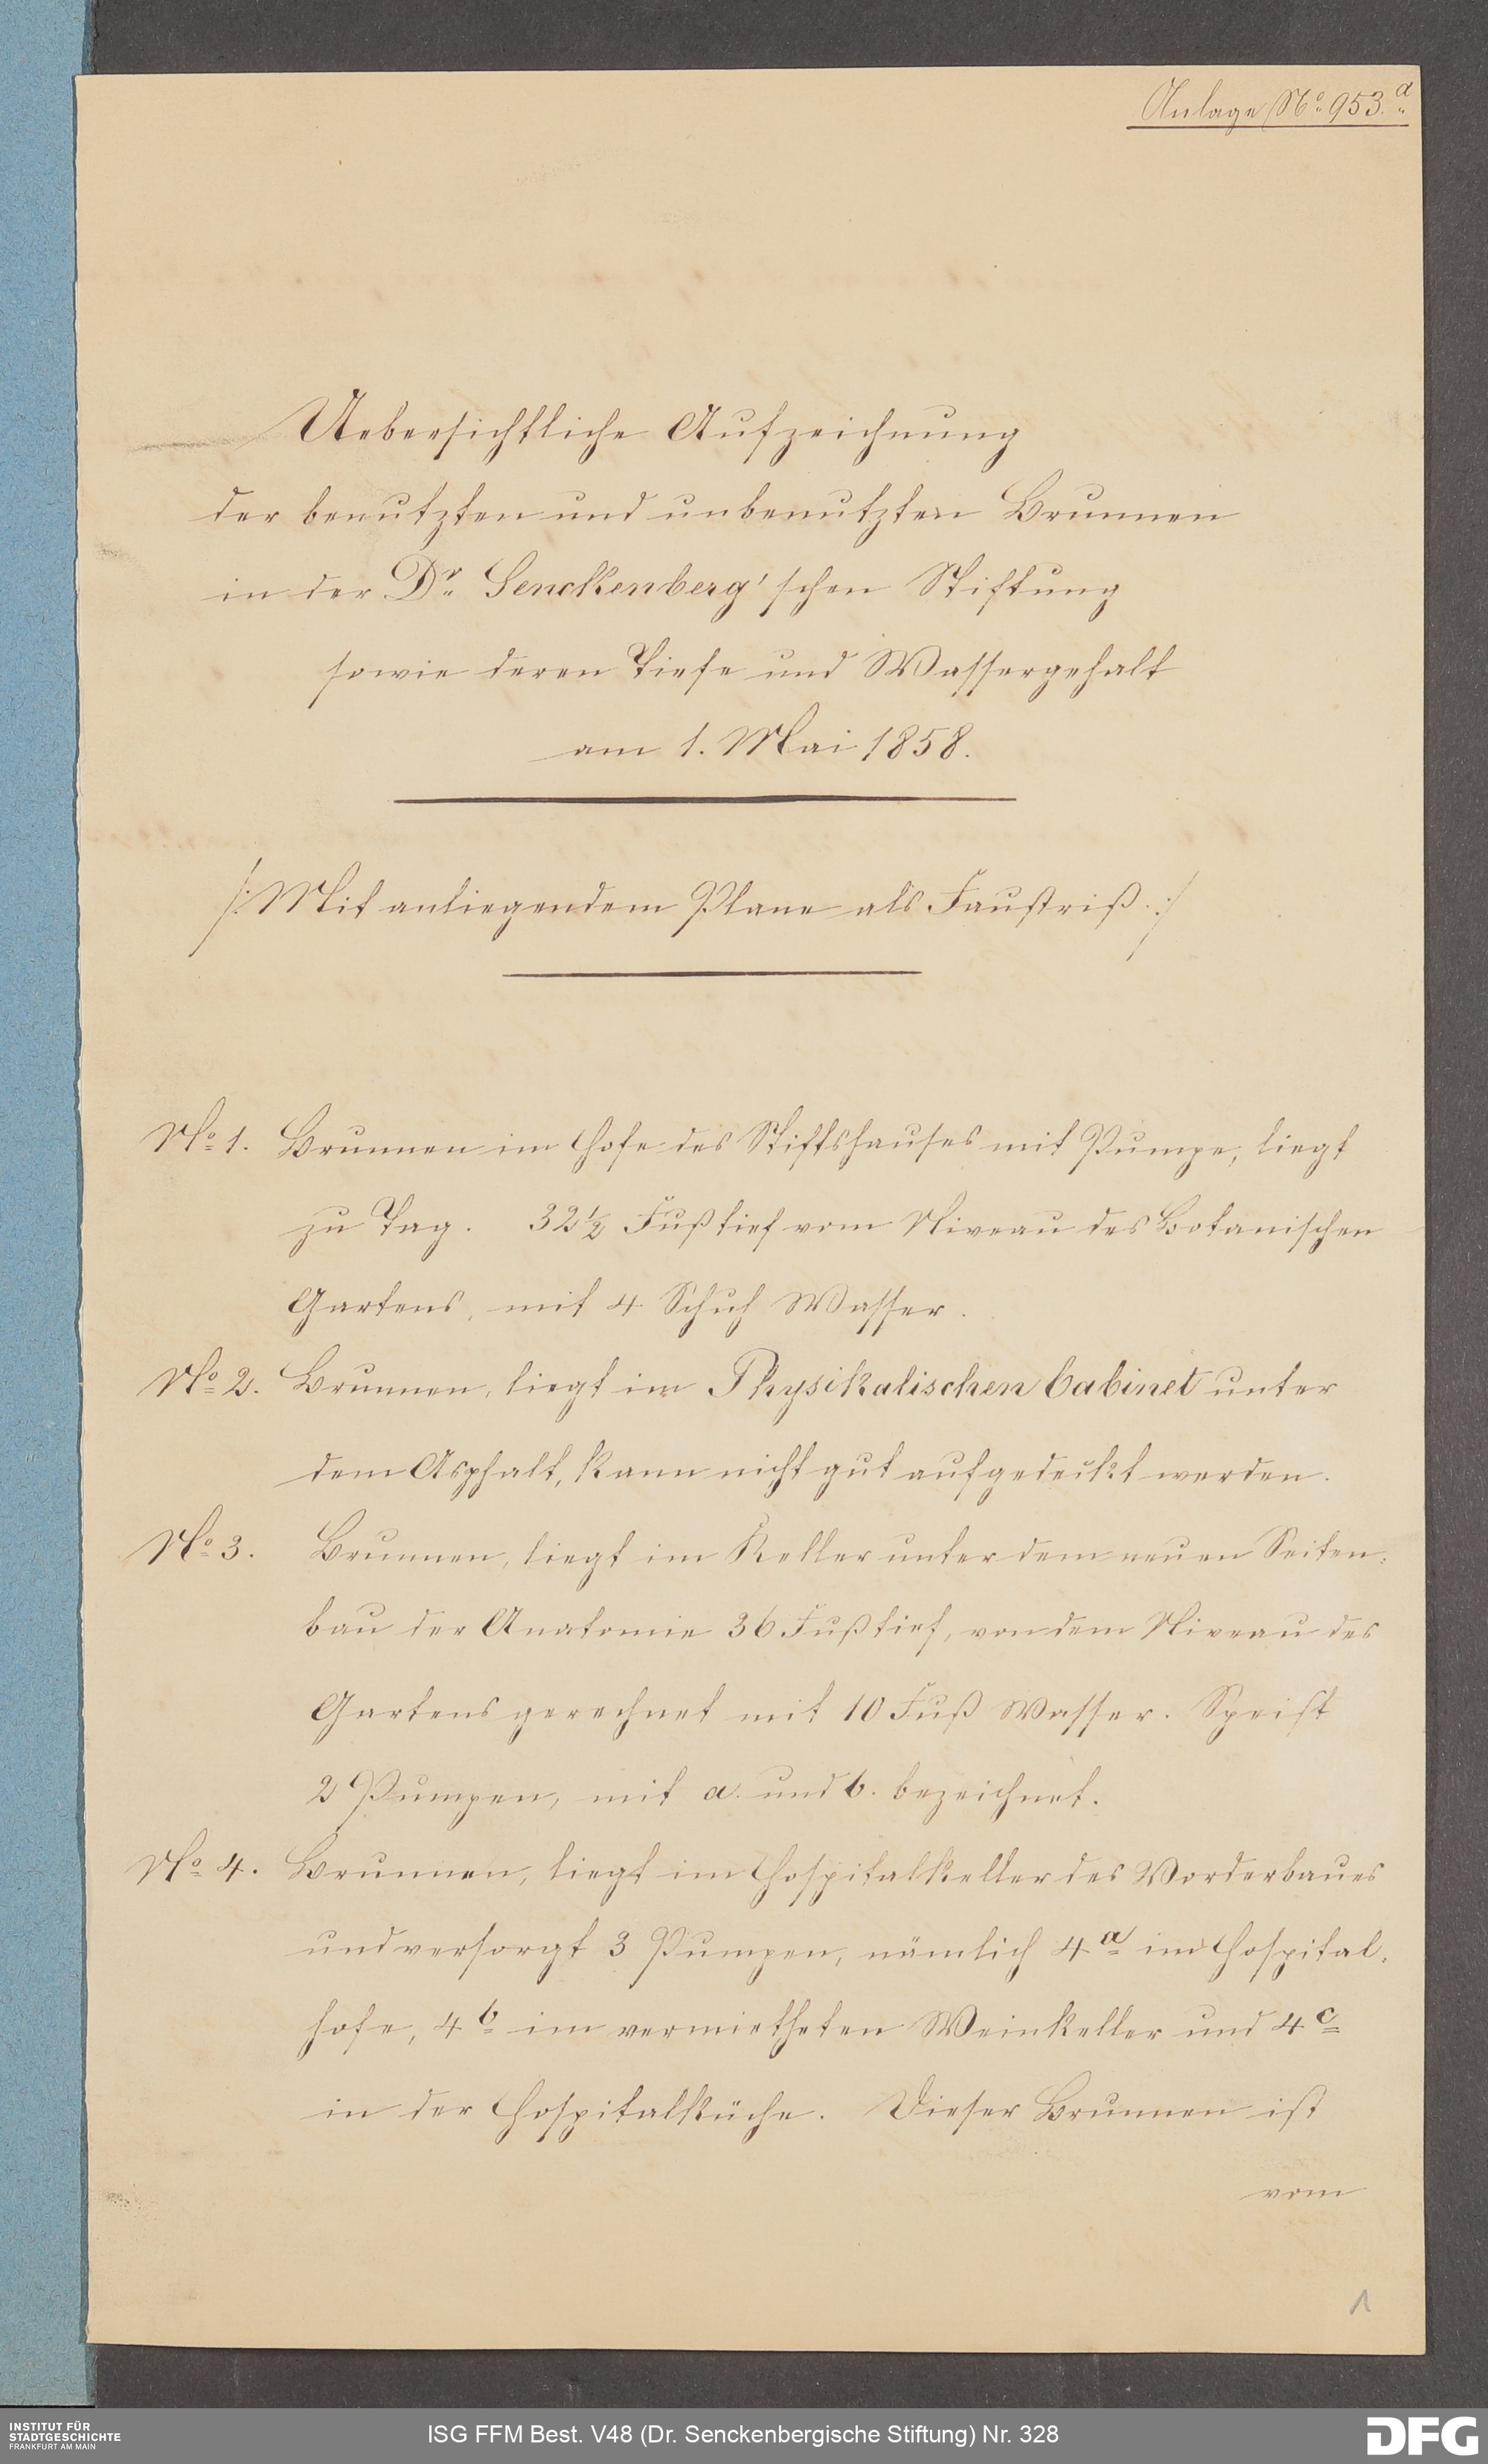 Anlage No. 953.a
Uebersichtliche Aufzeichnung
der benutzten und unbenutzten Brunnen
in der Dr. Senckenberg'schen Stiftung
sowie deren Tiefe und Wassergehalt
am 1. Mai 1858.
/: Mit anliegendem Plane als Faustriß. :/
No. 1. Brunnen im Hofe des Stiftshauses mit Pumpe, liegt
zu Tag. 32 1/2 Fuß tief vom Niveau des Botanischen
Gartens, mit 4 Schuh Wasser.
No. 2. Brunnen, liegt im Physikalischen Cabinet unter
dem Asphalt, kann nicht gut aufgedeckt werden.
No. 3. Brunnen, liegt im Keller unter dem neuen Seiten-
bau der Anatomie 36 Fuß tief, von dem Niveau des
Gartens gerechnet mit 10 Fuß Wasser. Speist
2 Pumpen, mit a. und b. bezeichnet.
No. 4. Brunnen, liegt im Hospitalkeller des Vorderbaues
und versorgt 3 Pumpen, nämlich 4a im Hospital-
hofe, 4b im vermietheten Weinkeller und 4c
in der Hospitalküche. Dieser Brunnen ist
vom
1
INSTITUT FÜR
STADTGESCHICHTE
FRANKFURT AM MAIN
ISG FFM Best. V48 (Dr. Senckenbergische Stiftung) Nr. 328
DFG